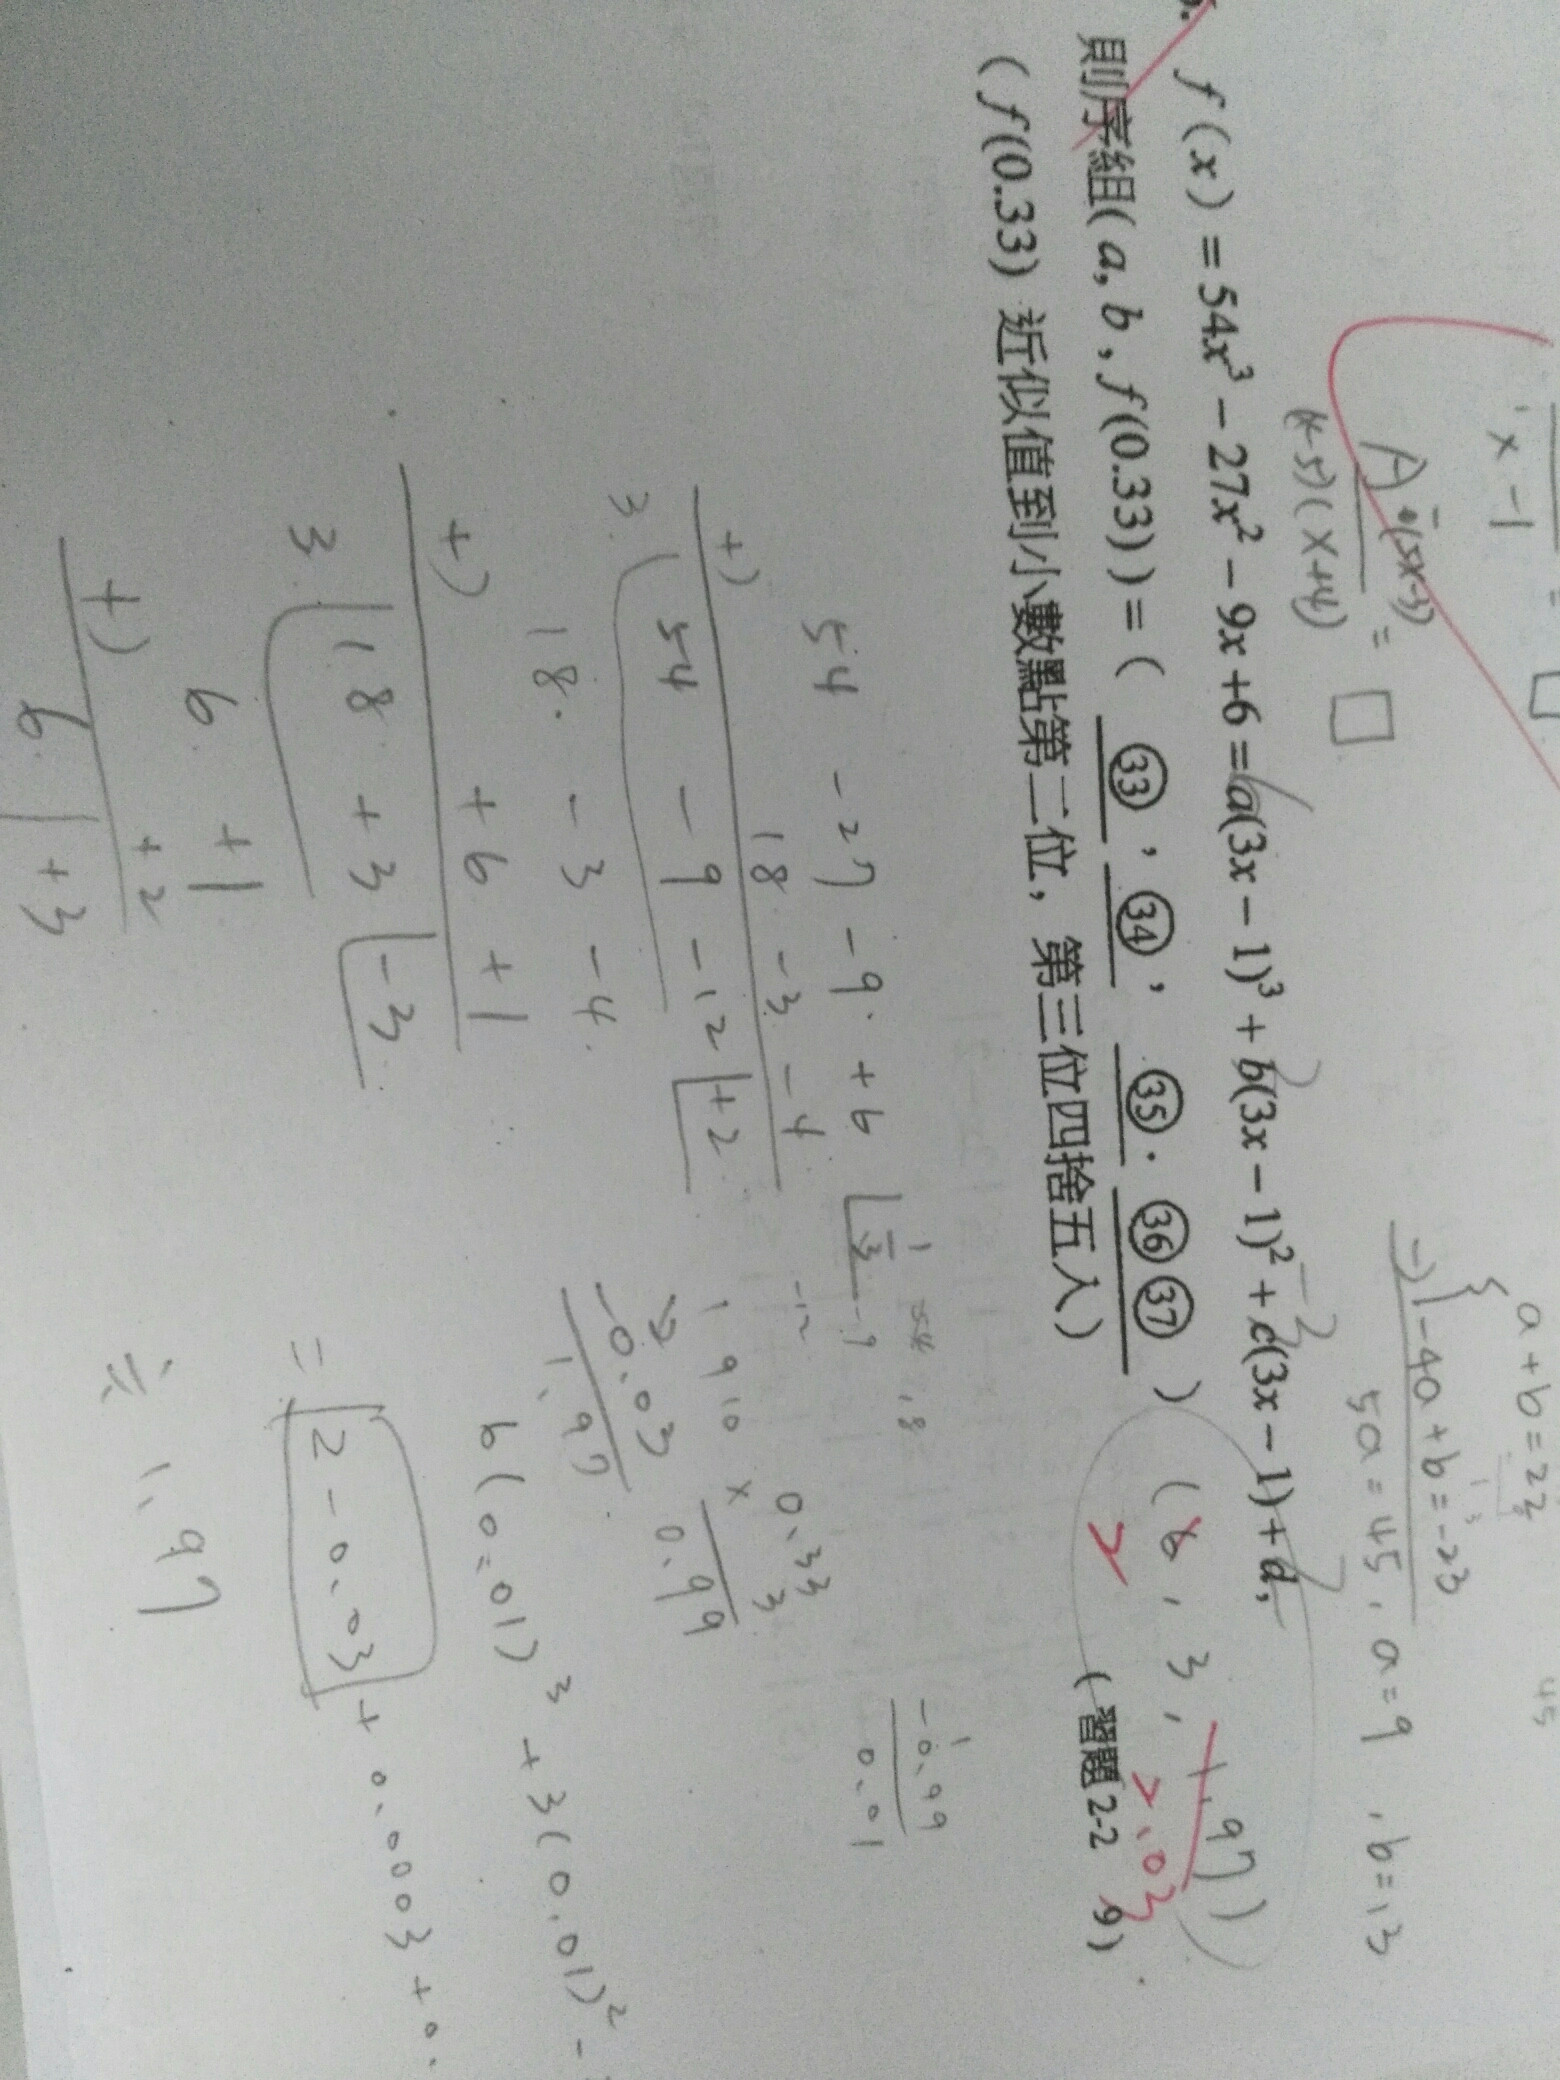 x - 1
=
□
A · (5x-3)
(x-5)(x+4)
= □
a + b = 22
-) -4a + b = -23
5a = 45, a = 9, b = 13
45
f(x) = 54x³ - 27x² - 9x + 6 = a(3x - 1)³ + b(3x - 1)² + c(3x - 1) + d,
則序組(a, b, f(0.33)) = ( ㉝ , ㉞ , ㉟ . ㊱ ㊲ )
(6, 3, 1.97)
2 2.03
( f(0.33) 近似值到小數點第二位, 第三位四捨五入)
(習題2-2 9)
54 - 27 - 9 + 6 | 1/3
+) 18 - 3 - 4
3 | 54 - 9 - 12 | + 2
18 - 3 - 4
+) + 6 + 1
3 | 18 + 3 | - 3
6 + 1
+) + 2
6 | + 3
54 18
-9
-12
1 9 10
2
-0.03
1.97
0.33
x 3
0.99
1
-0.99
0.01
6(0.01)³ + 3(0.01)² -
= 2 - 0.03 + 0.0003 + 0.
≒ 1.97